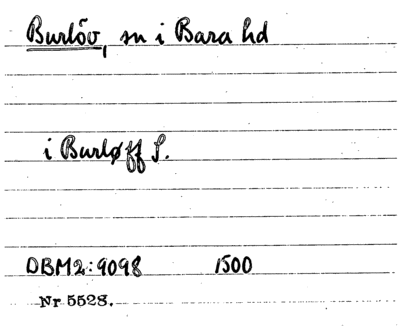 Burlöv, sn i Bara hd
i Burløff S.
DBM2:9098 1500
Nr 5528.